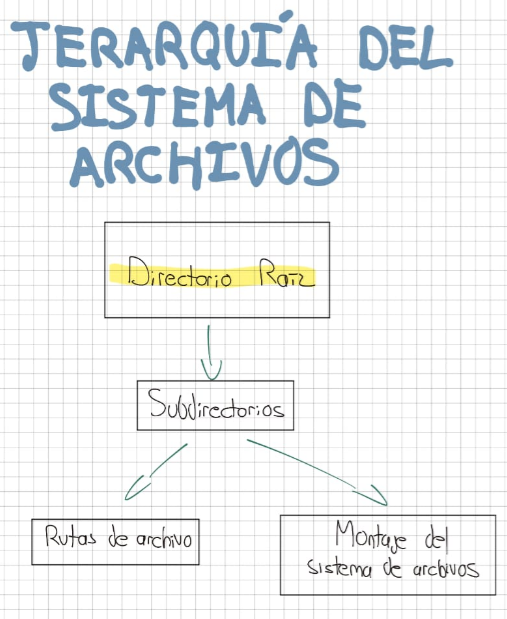 JERARQUÍA DEL
SISTEMA DE
ARCHIVOS
Directorio Raíz
Subdirectorios
Rutas de archivo
Montaje del
sistema de archivos